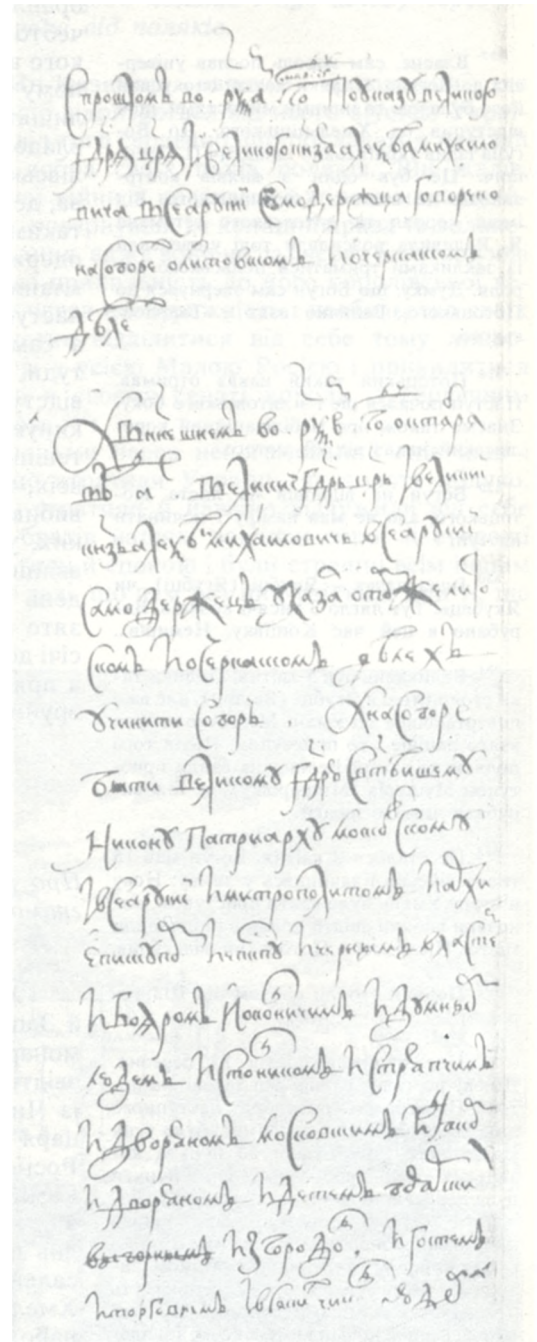 В прошломъ во рѯа году по указу великого
гдря цря и великого князя алексѣя михаило
вича всеа русиі самодержца говорено
на соборе о литовскомъ и о черкаскомъ
деле
нынешнемъ во рѯв году октября
великиі гдрь црь и великиі
князь алексѣи михаиловичь всеа русиі
самодержецъ указал о том же о литов
скомъ и о черкаскомъ о делехъ
учинити соборъ а на соборе
быти великому гдрю святѣишему
Никону Патриарху московскому
и всеа русиі и митрополитомъ и архи
епископом и епископу и чернымъ властемъ
и бояромъ и околничимъ и думнымъ
людемъ и столникомъ и стряпчимъ
и дворяномъ московскимъ и дьякомъ
и дворяномъ и детемъ боярскимъ
выборнымъ из городовъ и гостемъ
и торговымъ и всякихъ чиновъ людемъ